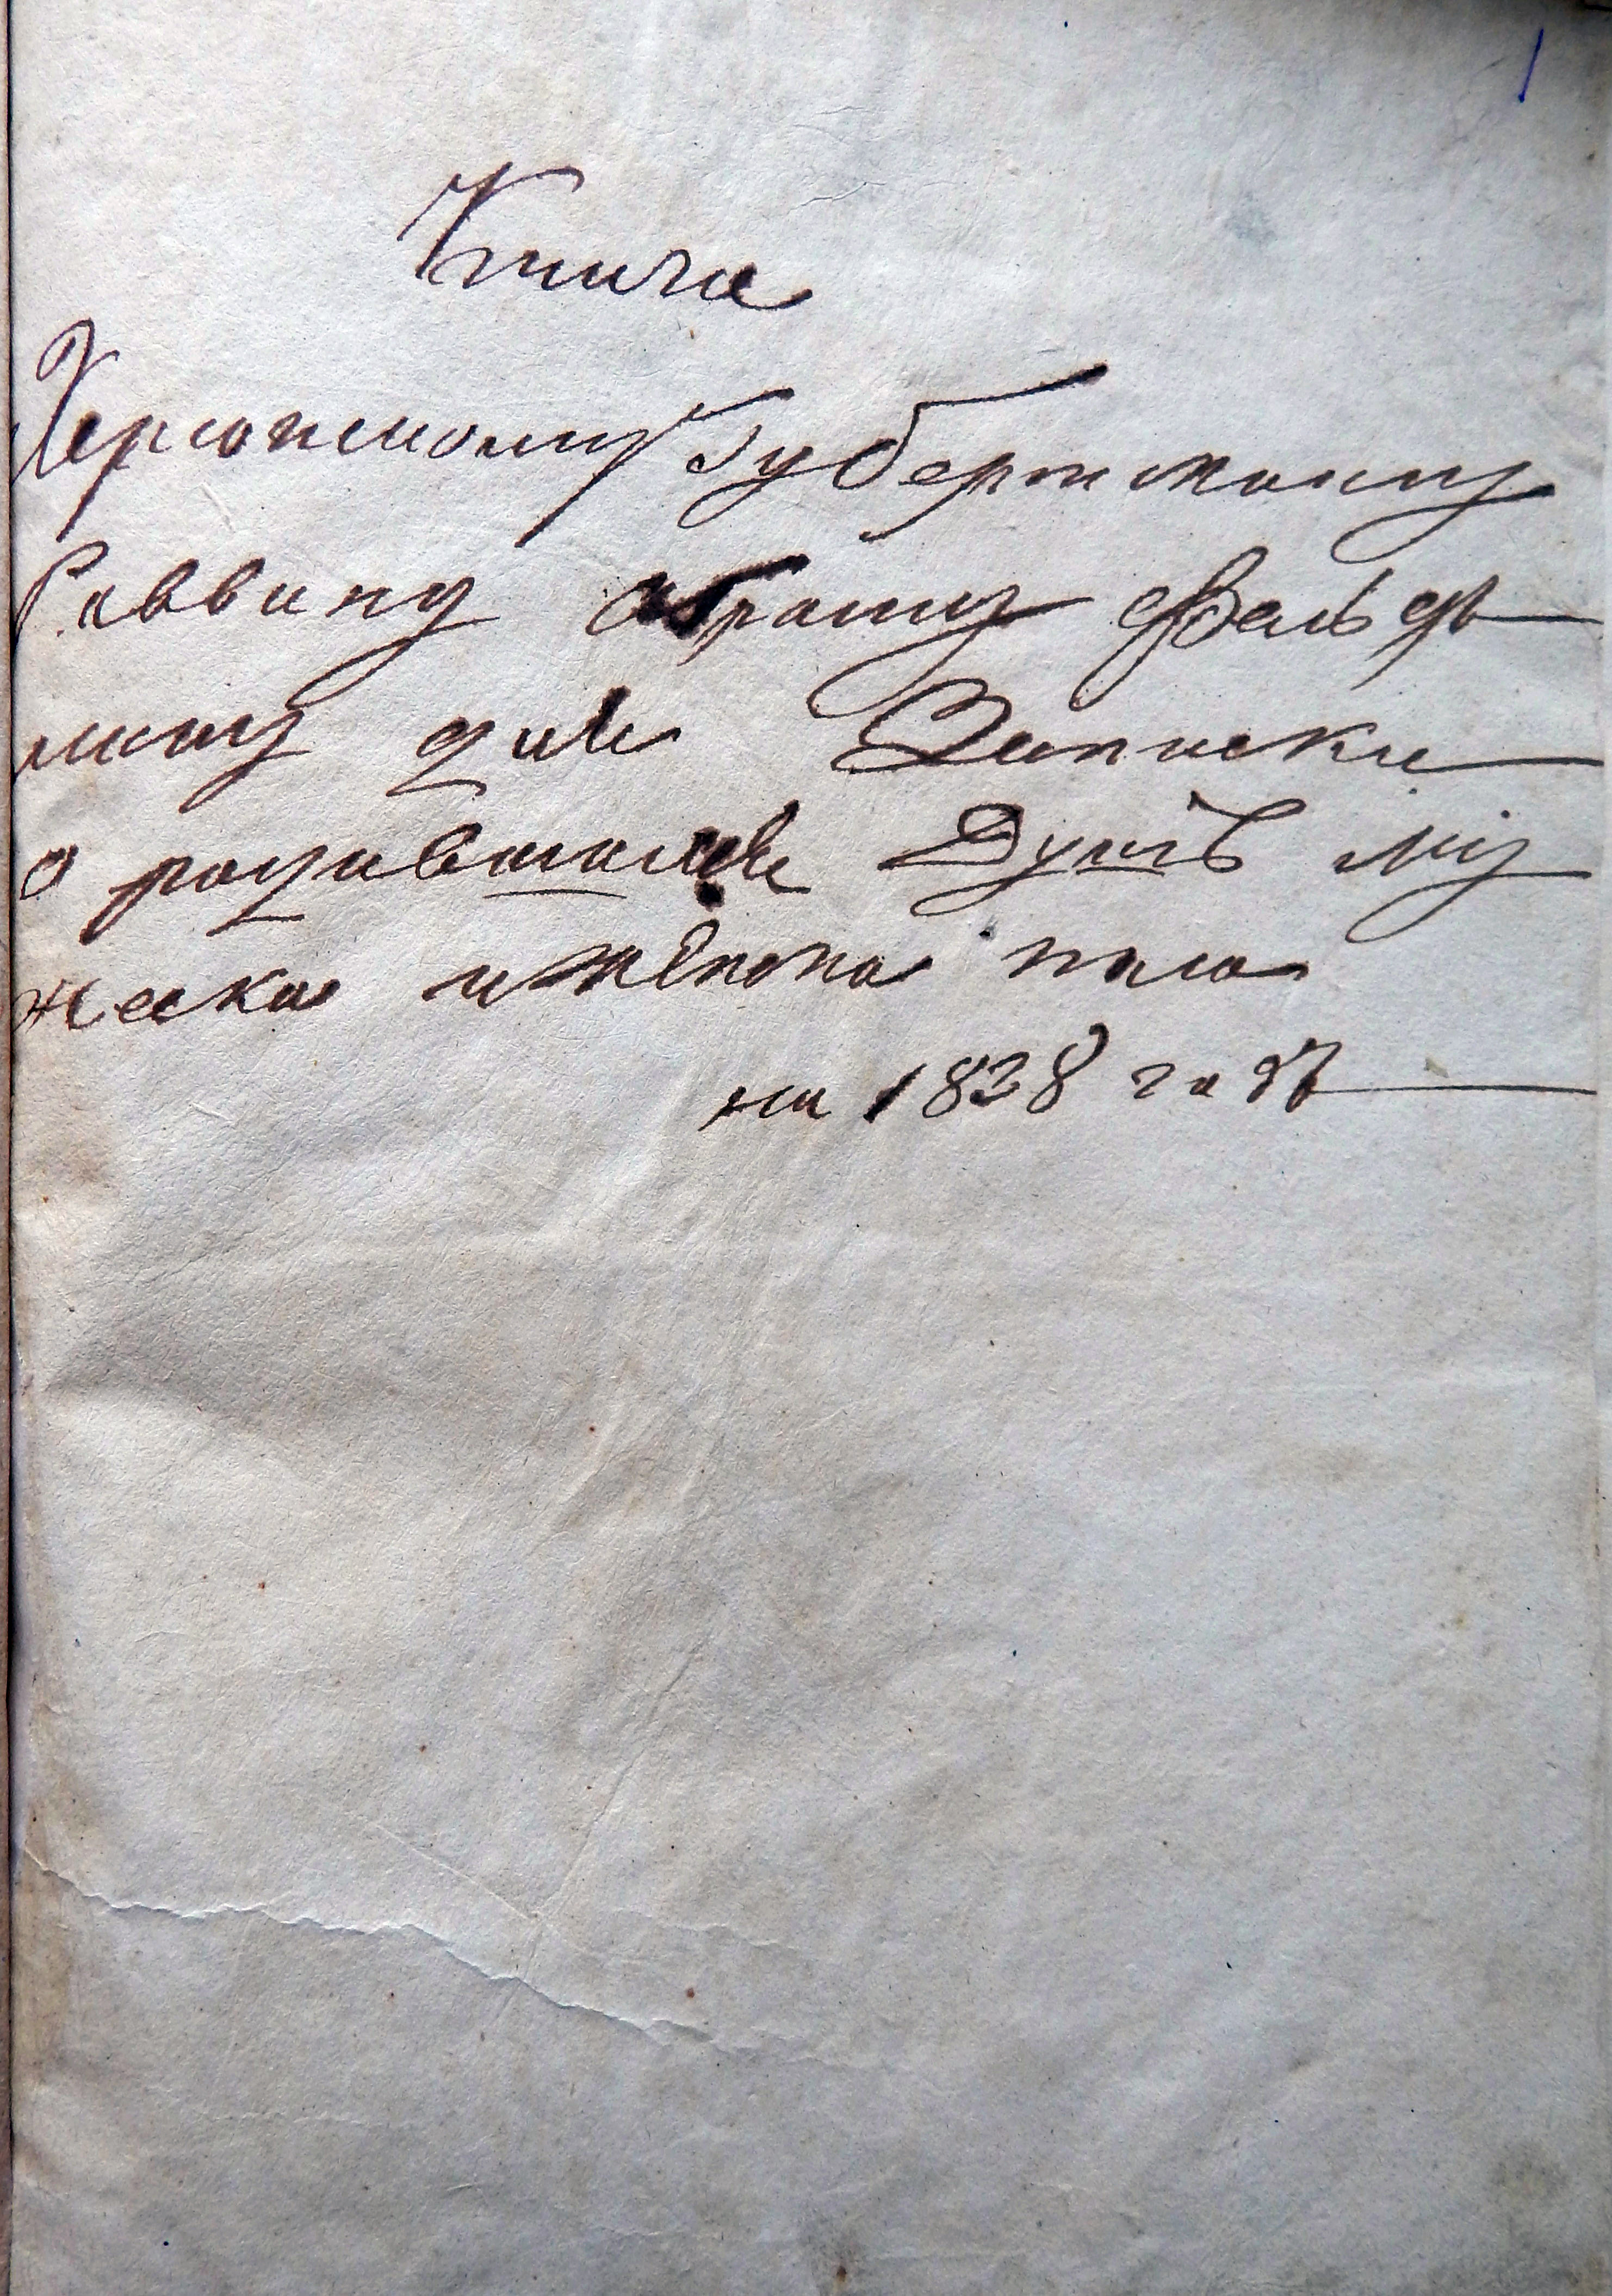 1
Книга
Херсонскому Губернскому
Раввину Абраму Фельдз
ману для Записки
о родившихся Душъ му
жеска и женска пола
на 1838 годъ